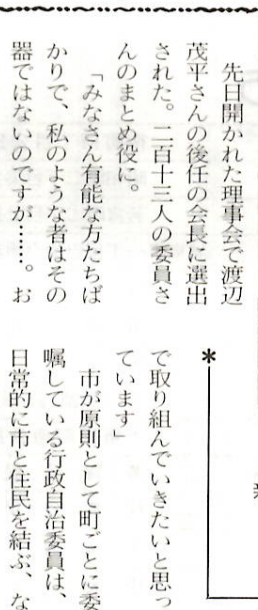 先日開かれた理事会で渡辺
茂平さんの後任の会長に選出
された。二百十三人の委員さ
んのまとめ役に。
「みなさん有能な方たちば
かりで、私のような者はその
器ではないのですが……。お
*
で取り組んでいきたいと思っ
ています」
市が原則として町ごとに委
嘱している行政自治委員は、
日常的に市と住民を結ぶ、な